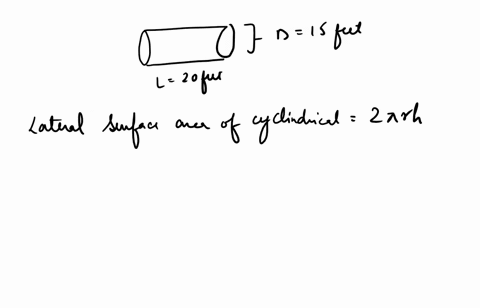 D = 15 feet
L = 20 feet
Lateral Surface area of cyclindrical = 2πrh